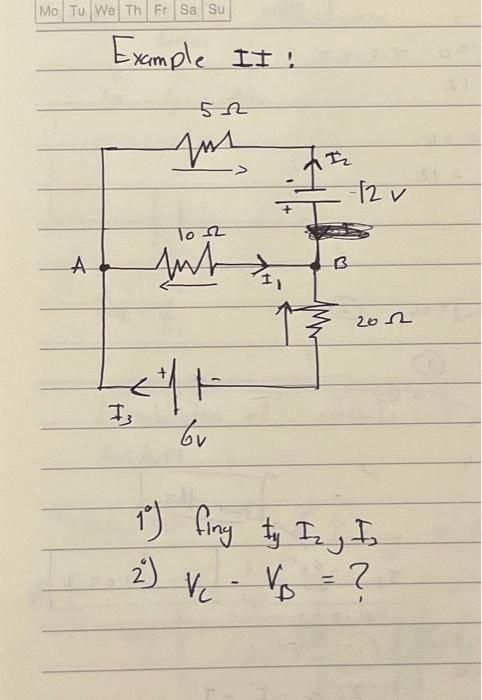 Mo Tu We Th Fr Sa Su
Example II :
5 Ω
I2
-
+
12 V
10 Ω
A
I1
B
20 Ω
+
-
I3
6v
1°) finy I1, I2, I3
2°) VC - VB = ?